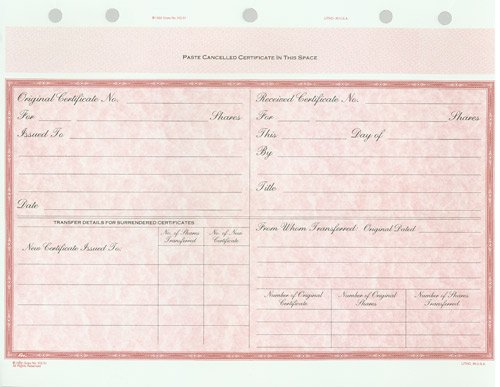 LITHO. IN U.S.A.
PASTE CANCELLED CERTIFICATE IN THIS SPACE
Original Certificate No.
For Shares
Issued To
Date
Received Certificate No.
For Shares
This Day of
By
Title
TRANSFER DETAILS FOR SURRENDERED CERTIFICATES
New Certificate Issued To:
No. of Shares
Transferred
No. of New
Certificate
From Whom Transferred Original Dated
Number of Original
Certificate
Number of Original
Shares
Number of Shares
Transferred
All Rights Reserved
LITHO. IN U.S.A.